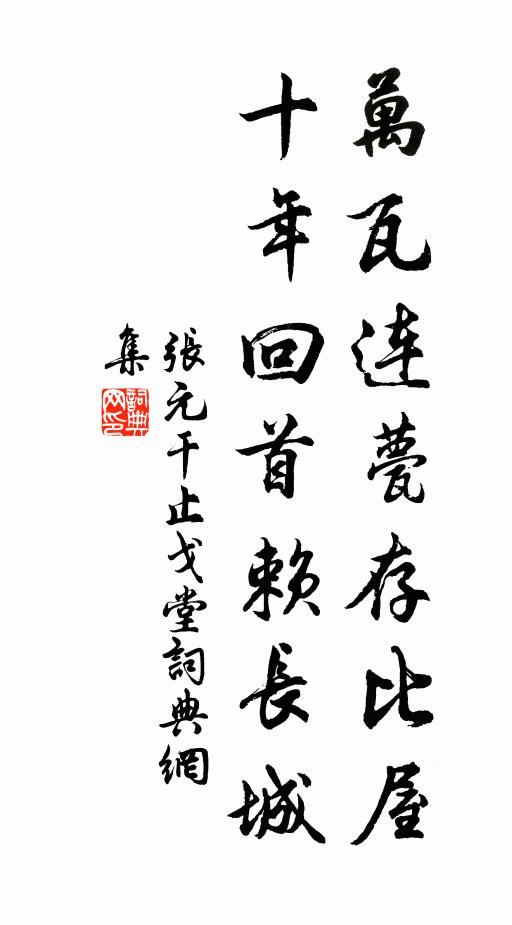 萬瓦連甍存比屋
十年回首賴長城
張元干止戈堂詞典網
集
詞典網印